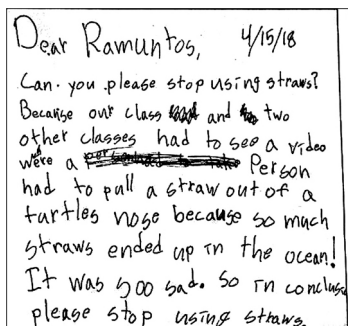 Dear Ramuntos, 4/15/18
Can. you please stop using straws?
Because our class and two
other classes had to see a video
where a Person
had to pull a straw out of a
turtles nose because so much
straws ended up in the ocean!
It was soo sad. So in conclus
please stop using straws.